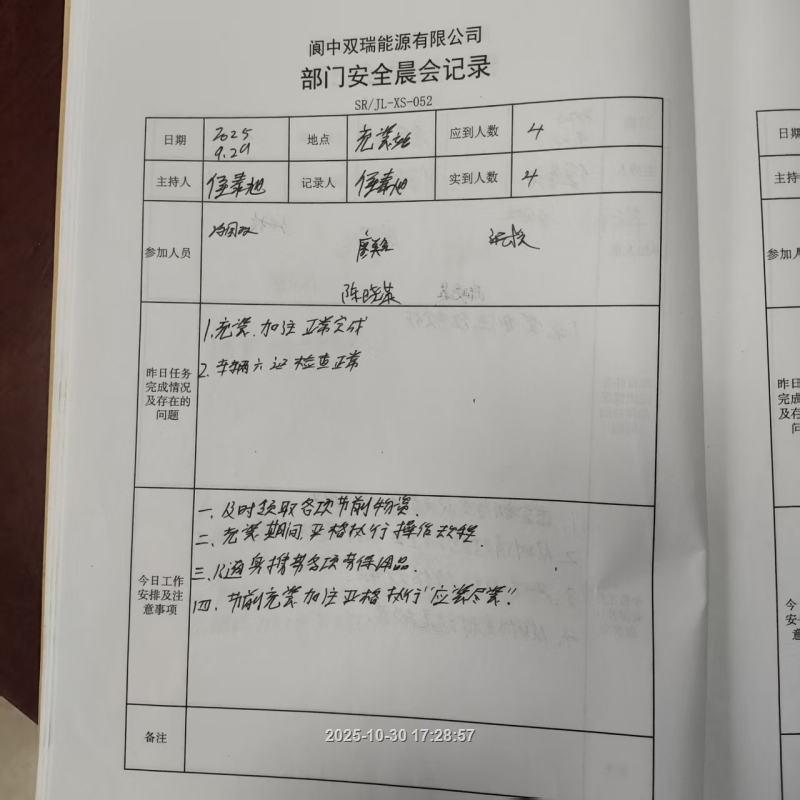 阆中双瑞能源有限公司
部门安全晨会记录
SR/JL-XS-052
日期 2025 9.29 地点 充装站 应到人数 4
主持人 记录人 实到人数 4
参加人员
陈晓荣
昨日任务完成情况及存在的问题
1.充装.加注正常完成
2.车辆六证检查正常
今日工作安排及注意事项
一、及时领取各项节前物资.
二、充装期间,严格执行操作规程.
三、随身携带各项劳保用品.
四、节前充装加注严格执行“应装尽装”!
备注
2025-10-30 17:28:57
日期
主持
参加人
昨日
完成
及存
问
今
安
意